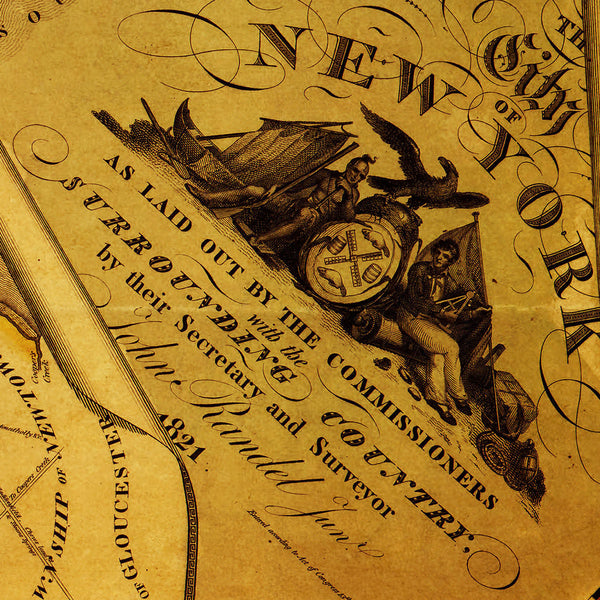 SOU
THE
City
OF
NEW YORK
AS LAID OUT BY THE COMMISSIONERS
with the
SURROUNDING COUNTRY,
by their Secretary and Surveyor
John Randel Junr.
1821
Entered according to Act of Congress
Coopers Creek
W.N SHIP OF NEWTOW
OF GLOUCESTER
To Coopers Creek